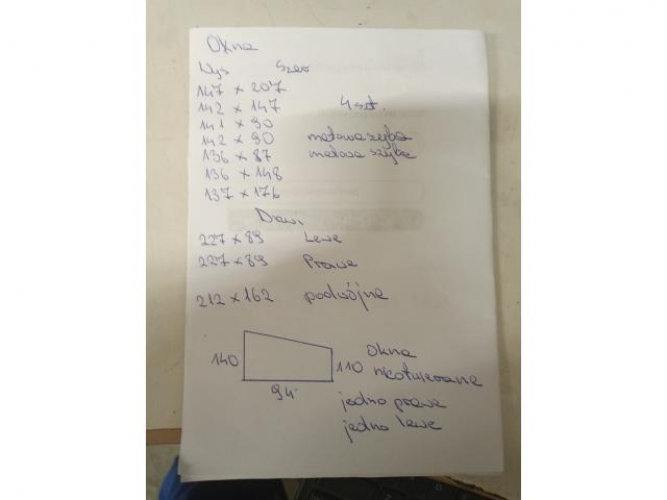 Okna
Wys Szer
147 x 207
142 x 147 4 szt.
141 x 90
142 x 90 matowa szyba
136 x 87 matowa szyba
136 x 148
137 x 176
Drzwi
227 x 89 Lewe
227 x 89 Prawe
212 x 162 podwójne
140 110 okna
nieotwierane
94
jedno prawe
jedno lewe